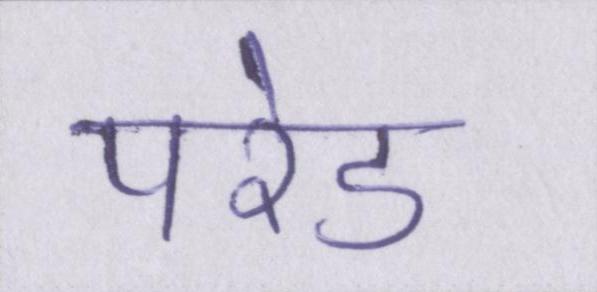 परेड